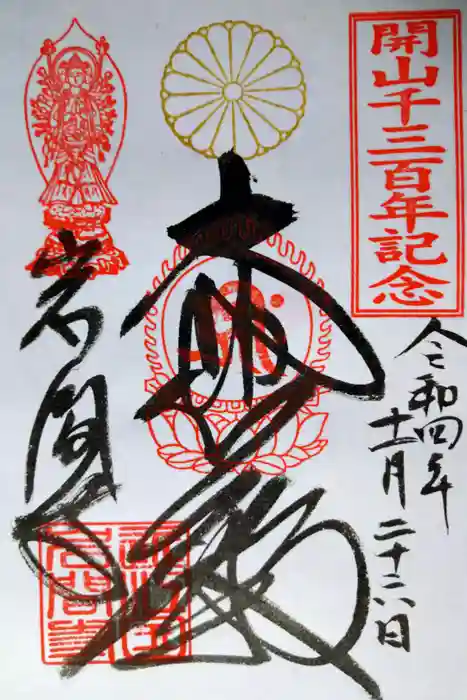 開山千三百年記念
令和四年
十一月二十六日
大悲殿
岩間寺